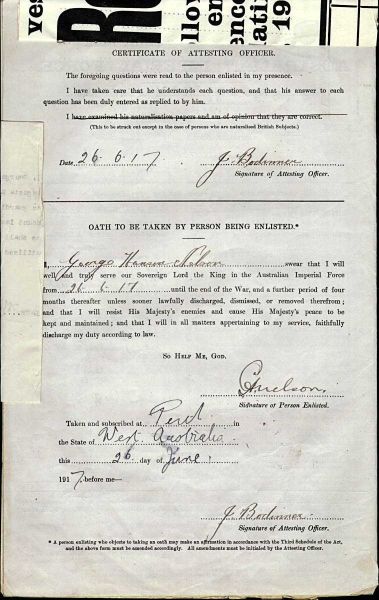 CERTIFICATE OF ATTESTING OFFICER.
The foregoing questions were read to the person enlisted in my presence.
I have taken care that he understands each question, and that his answer to each
question has been duly entered as replied to by him.
I have examined his naturalisation papers and am of opinion that they are correct.
(This to be struck out except in the case of persons who are naturalised British Subjects.)
Date 26-6-17 J. Bodinner
Signature of Attesting Officer.
OATH TO BE TAKEN BY PERSON BEING ENLISTED.*
I, George Nelson swear that I will
well and truly serve our Sovereign Lord the King in the Australian Imperial Force
from 26.6.17 until the end of the War, and a further period of four
months thereafter unless sooner lawfully discharged, dismissed, or removed therefrom;
and that I will resist His Majesty's enemies and cause His Majesty's peace to be
kept and maintained; and that I will in all matters appertaining to my service, faithfully
discharge my duty according to law.
SO HELP ME, GOD.
Nelson
Signature of Person Enlisted.
Taken and subscribed at in
the State of West Australia
this 26 day of June
1917 before me—
J. Bodinner
Signature of Attesting Officer.
* A person enlisting who objects to taking an oath may make an affirmation in accordance with the Third Schedule of the Act,
and the above form must be amended accordingly. All amendments must be initialed by the Attesting Officer.